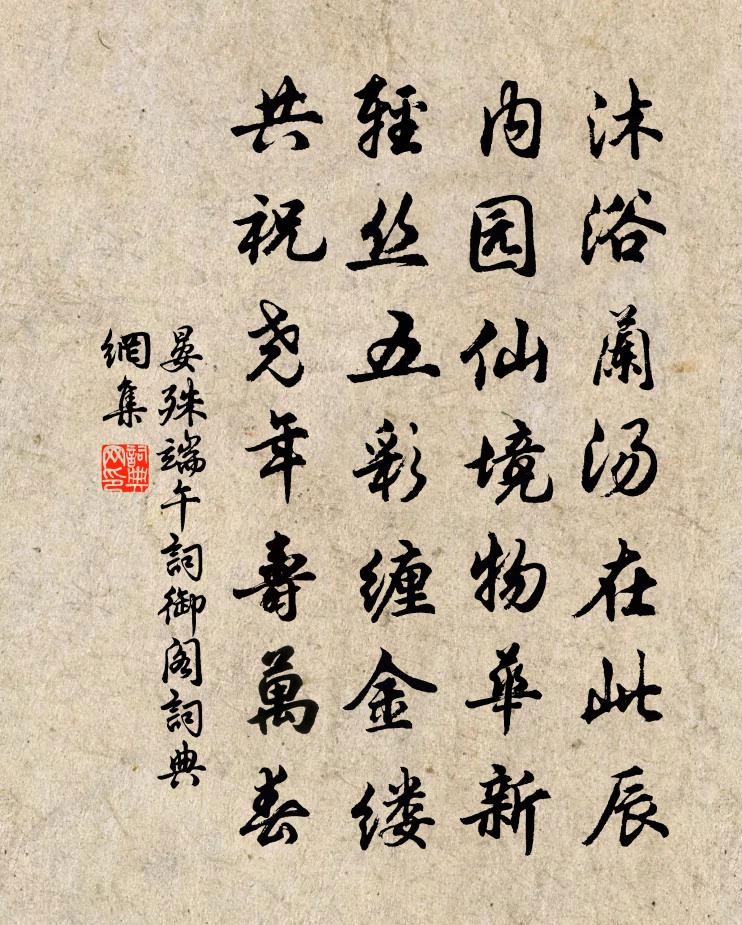 沐浴蘭汤在此辰
内园仙境物华新
轻丝五彩缠金缕
共祝尧年寿萬春
晏殊端午詞御阁詞典
網集
詞典
网印